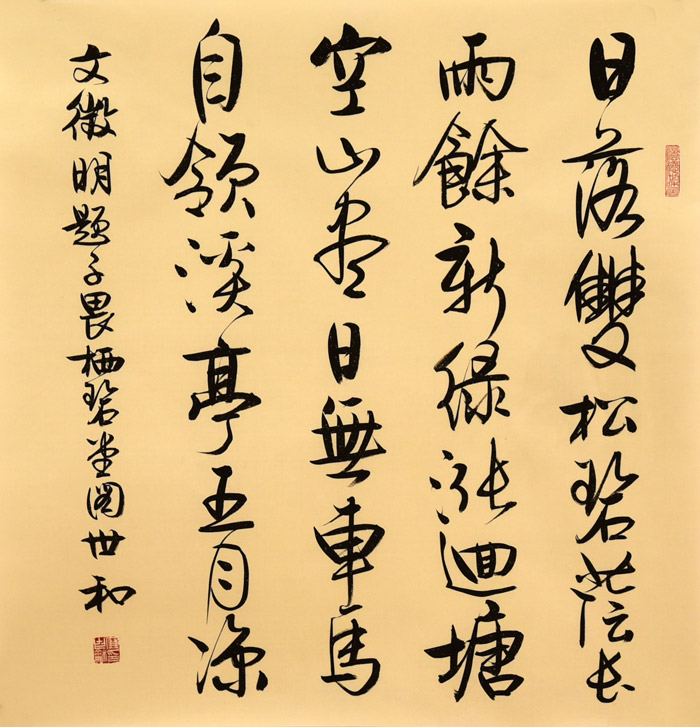 日落雙松碧蔭長
雨餘新綠漲迴塘
空山盡日無車馬
自領溪亭五月涼
文徵明題子畏栖碧堂圖世和